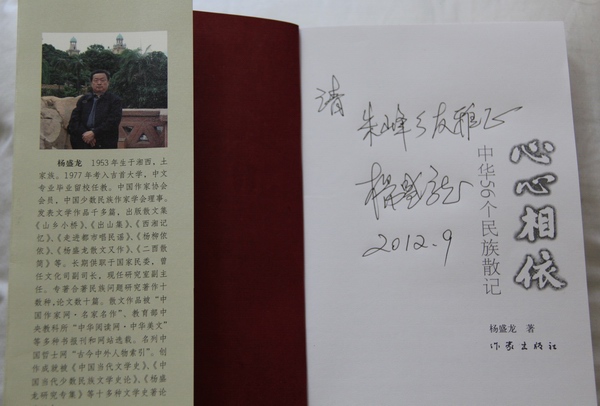 杨盛龙 1953年生于湘西,土
家族。1977年考入吉首大学,中文
专业毕业留校任教。中国作家协会
会员,中国少数民族作家学会理事。
发表文学作品千多篇,出版散文集
《山乡小桥》、《出山集》、《西湘记
忆》、《走进都市唱民谣》、《杨柳依
依》、《杨盛龙散文又作》、《二酉散
简》等。长期供职于国家民委,曾
任文化司副司长,现任研究室副主
任。专著合著民族问题研究著作十
数种,论文数十篇。散文作品被“中
国作家网·名家名作”、教育部中
央教科所“中华阅读网·中华美文”
等多种书报刊和网站选载。名列中
国哲士网“古今中外人物索引”。创
作成就被《中国当代文学史》、《中
国当代少数民族文学史论》、《杨盛
龙研究专集》等十多种文学史著论
请
朱峰乡友雅正
杨盛龙
2012.9
心心相依
中华56个民族散记
杨盛龙 著
作家出版社